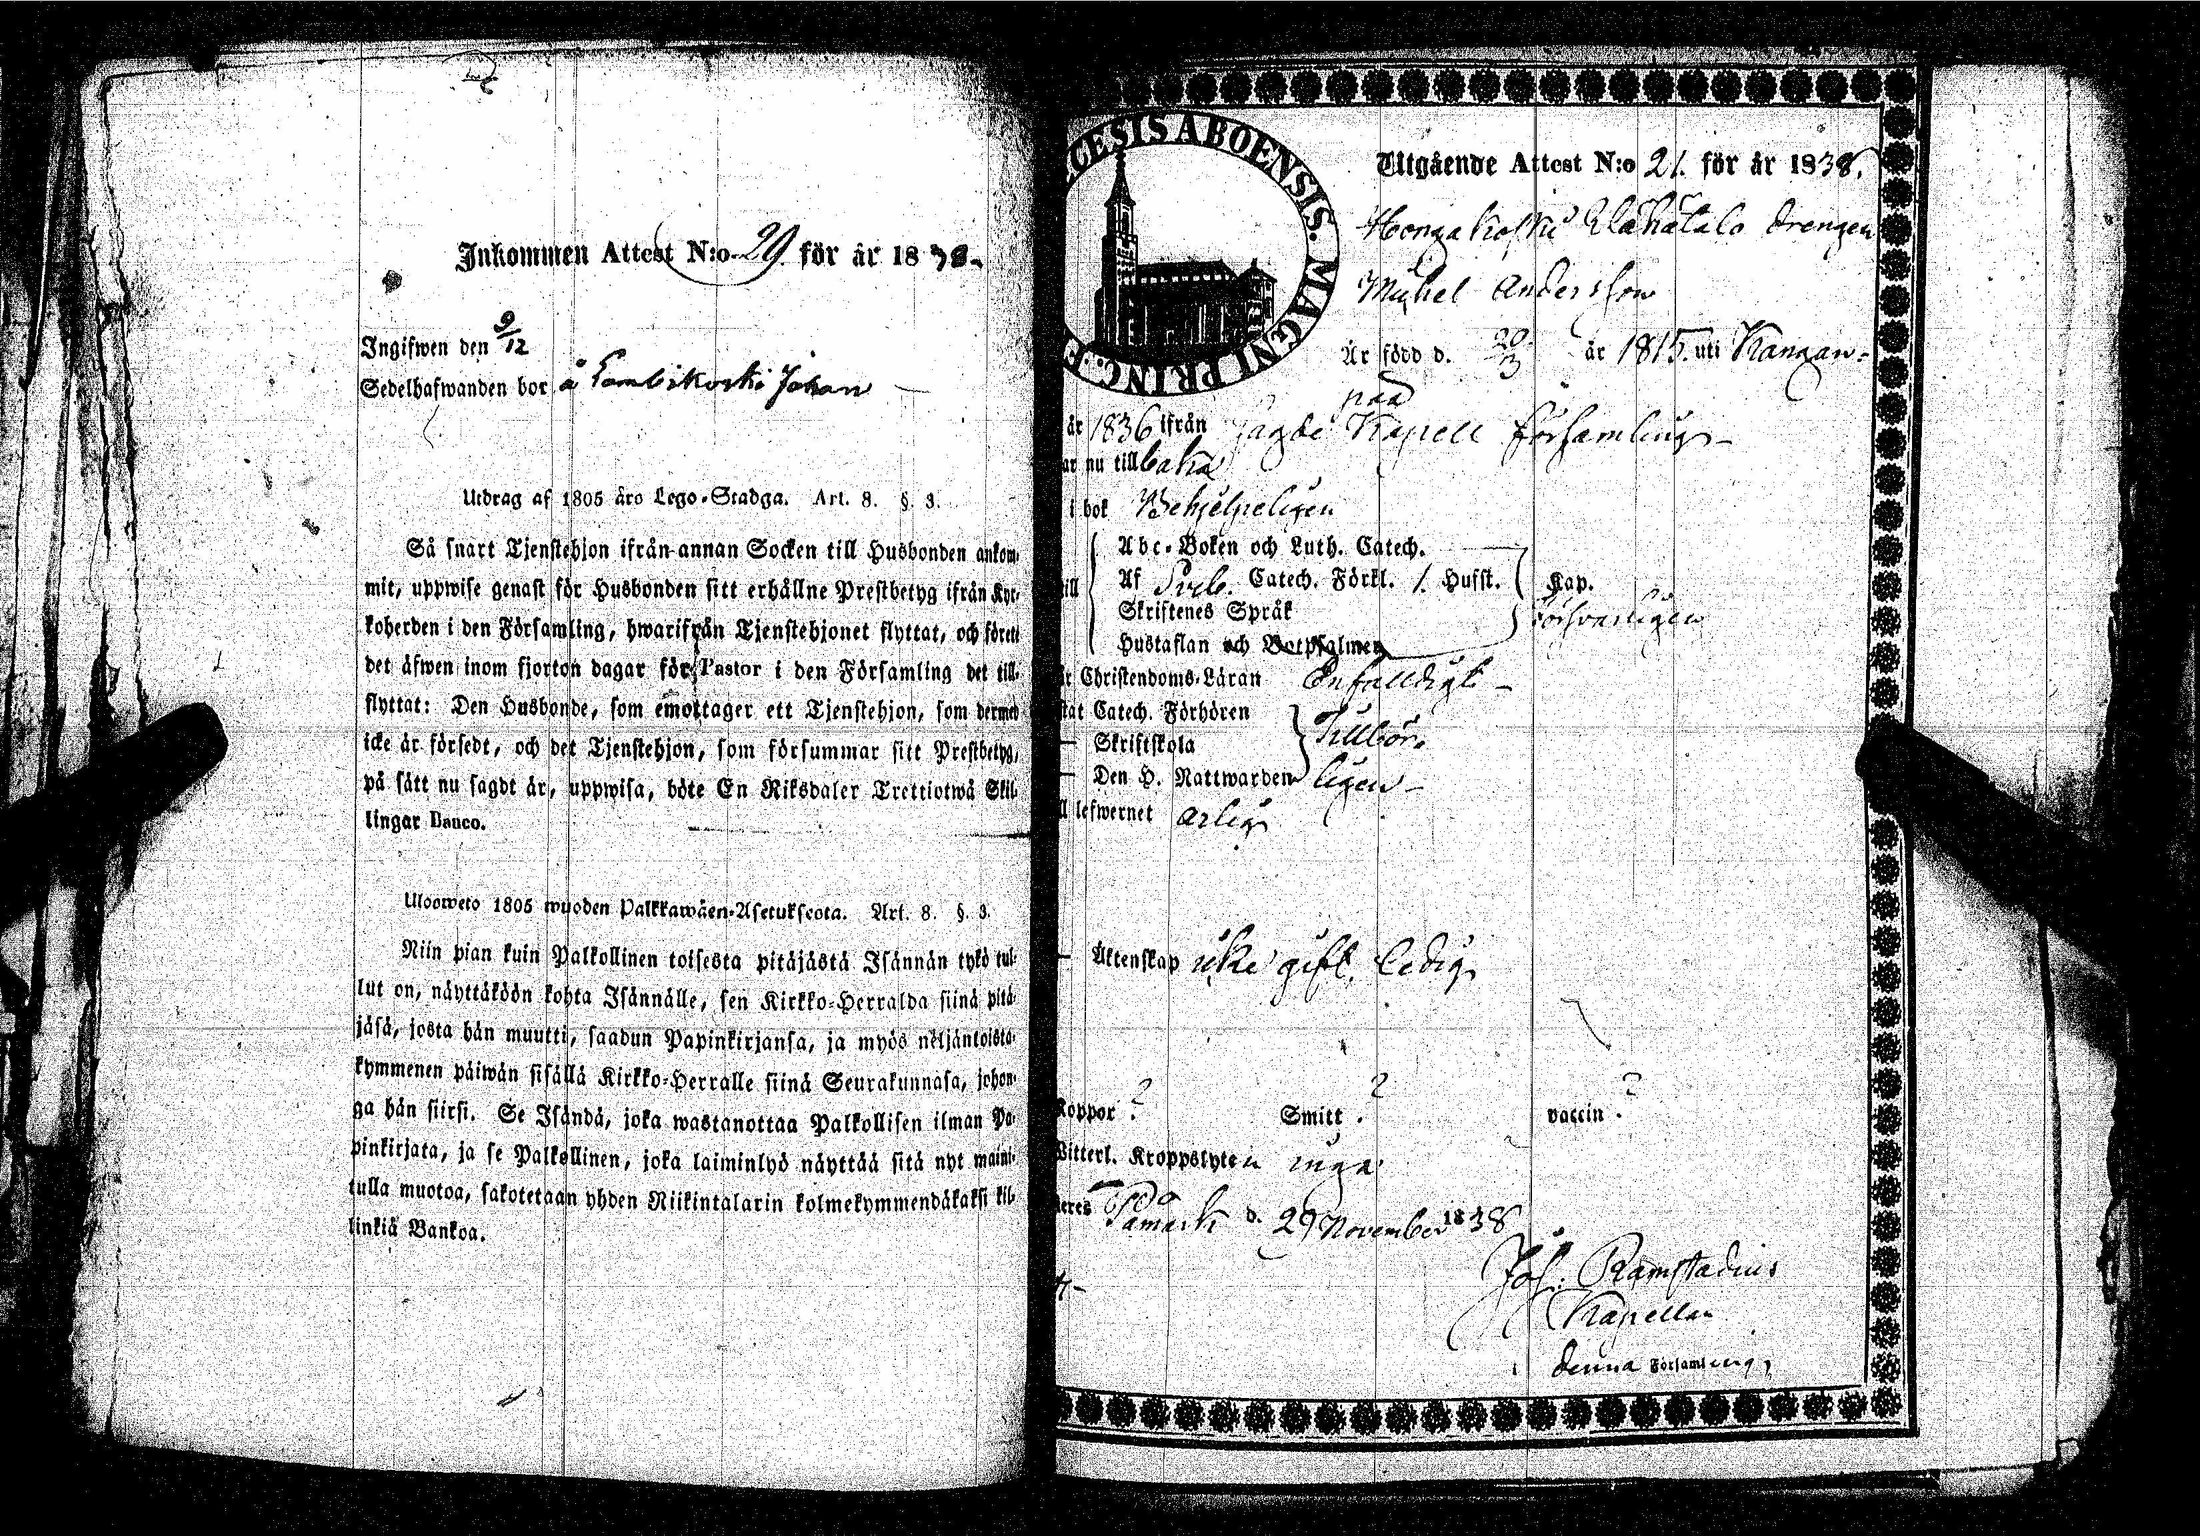 Inkommen Attest N:o 29. för år 1838.
Ingifwen den 9/12
Sedelhafwanden bor å Lambikoski Johan
Utdrag af 1805 års Lego-Stadga. Art. 8. §. 3.
Så snart Tjenstehjon ifrån annan Socken till Husbonden ankom-
mit, uppwise genast för Husbonden sitt erhållne Prestbetyg ifrån Kyr-
koherden i den Församling, hwarifrån Tjenstehjonet flyttat, och förete
det äfwen inom fjorton dagar för Pastor i den Församling det till-
flyttat: Den Husbonde, som emottager ett Tjenstehjon, som dermed
icke är försedt, och det Tjenstehjon, som försummar sitt Prestbetyg,
på sätt nu sagdt är, uppwisa, böte En Riksdaler Trettiotwå Skil-
lingar Banco.
Ulosweto 1805 wuoden Palkkawäen-Asetuksesta. Art. 8. §. 3.
Niin pian kuin Palkollinen toisesta pitäjästä Isännän tykö tul-
lut on, näyttäköön kohta Isännälle, sen Kirkko-Herralda siinä pitä-
jäsä, josta hän muutti, saadun Papinkirjansa, ja myös neljäntoista-
kymmenen päiwän sisällä Kirkko-Herralle siinä Seurakunnasa, johon-
ga hän siirsi. Se Isändä, joka wastanottaa Palkollisen ilman Pa-
pinkirjata, ja se Palkollinen, joka laiminlyö näyttää sitä nyt maini-
tulla muotoa, sakotetaan yhden Riikintalarin kolmekymmendäkaksi kil-
linkiä Bankoa.
CESIS ABOENSIS. MAGNI PRINC. F
Utgående Attest N:o 21. för år 1838.
Hongakoski Ylähätalo drengen
Michel Andersson
Är född d. 20/3 år 1815. uti Kangan-
paa
år 1836 ifrån sagde Kapell Församling-
ar nu tillbaka
i bok Behjelpeligen
Abc-Boken och Luth. Catech.
till Af Catech. Förkl. 1. Husst. Kap.
Skriftenes Språk försvarligen
Hustaflan och Botpsalmer
Christendoms-Läran Enfalldigt -
stat Catech. Förhören
- Skriftskola Tillbör-
- Den H. Nattwarden ligen -
ll lefwernet ärlig
- Äktenskap icke gift, ledig
Koppor ? Smitt . ? vaccin . ?
Witterl. Kroppslyten inga
deres Påmark d. 29 November 1838
Joh: Ramstadius
Kapellan
i denna Församling,